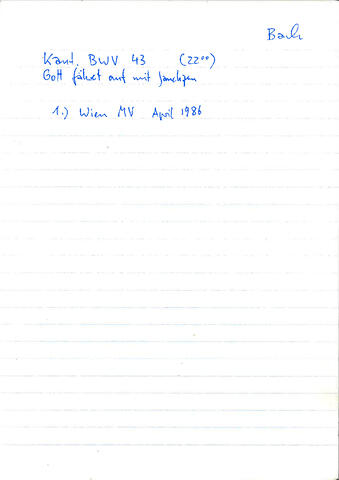 Bach
Kant. BWV 43 (22⁰⁰)
Gott fähret auf mit Jauchzen
1.) Wien MV April 1986